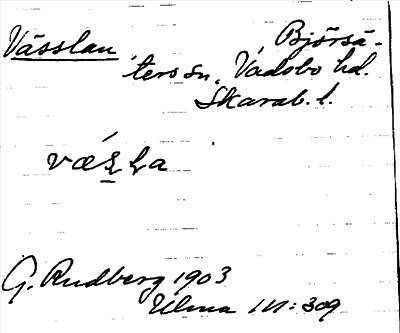 Vässlan Björsä-
ters sn. Vadsbo hd.
Skarab. l.
G. Rudberg 1903
Ulma 111:309